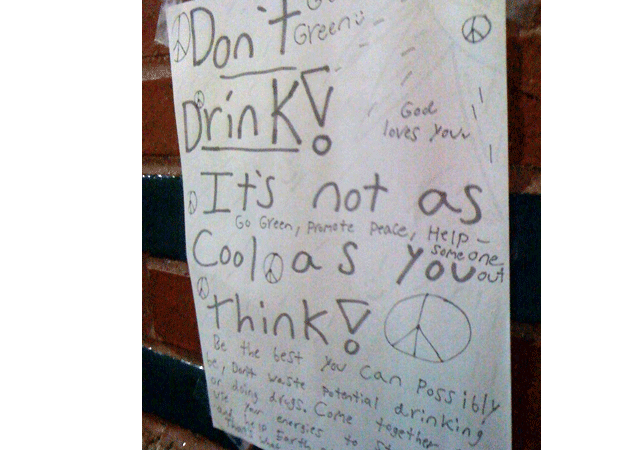 Go
Green
Don't
Drink!
God
loves you
It's not as
Go Green, promote peace, Help-
someone
out
Cool as you
think!
Be the best you can possibly
be, Don't waste potential drinking
or doing drugs. Come together
use your energies to
and help Earth
That's what